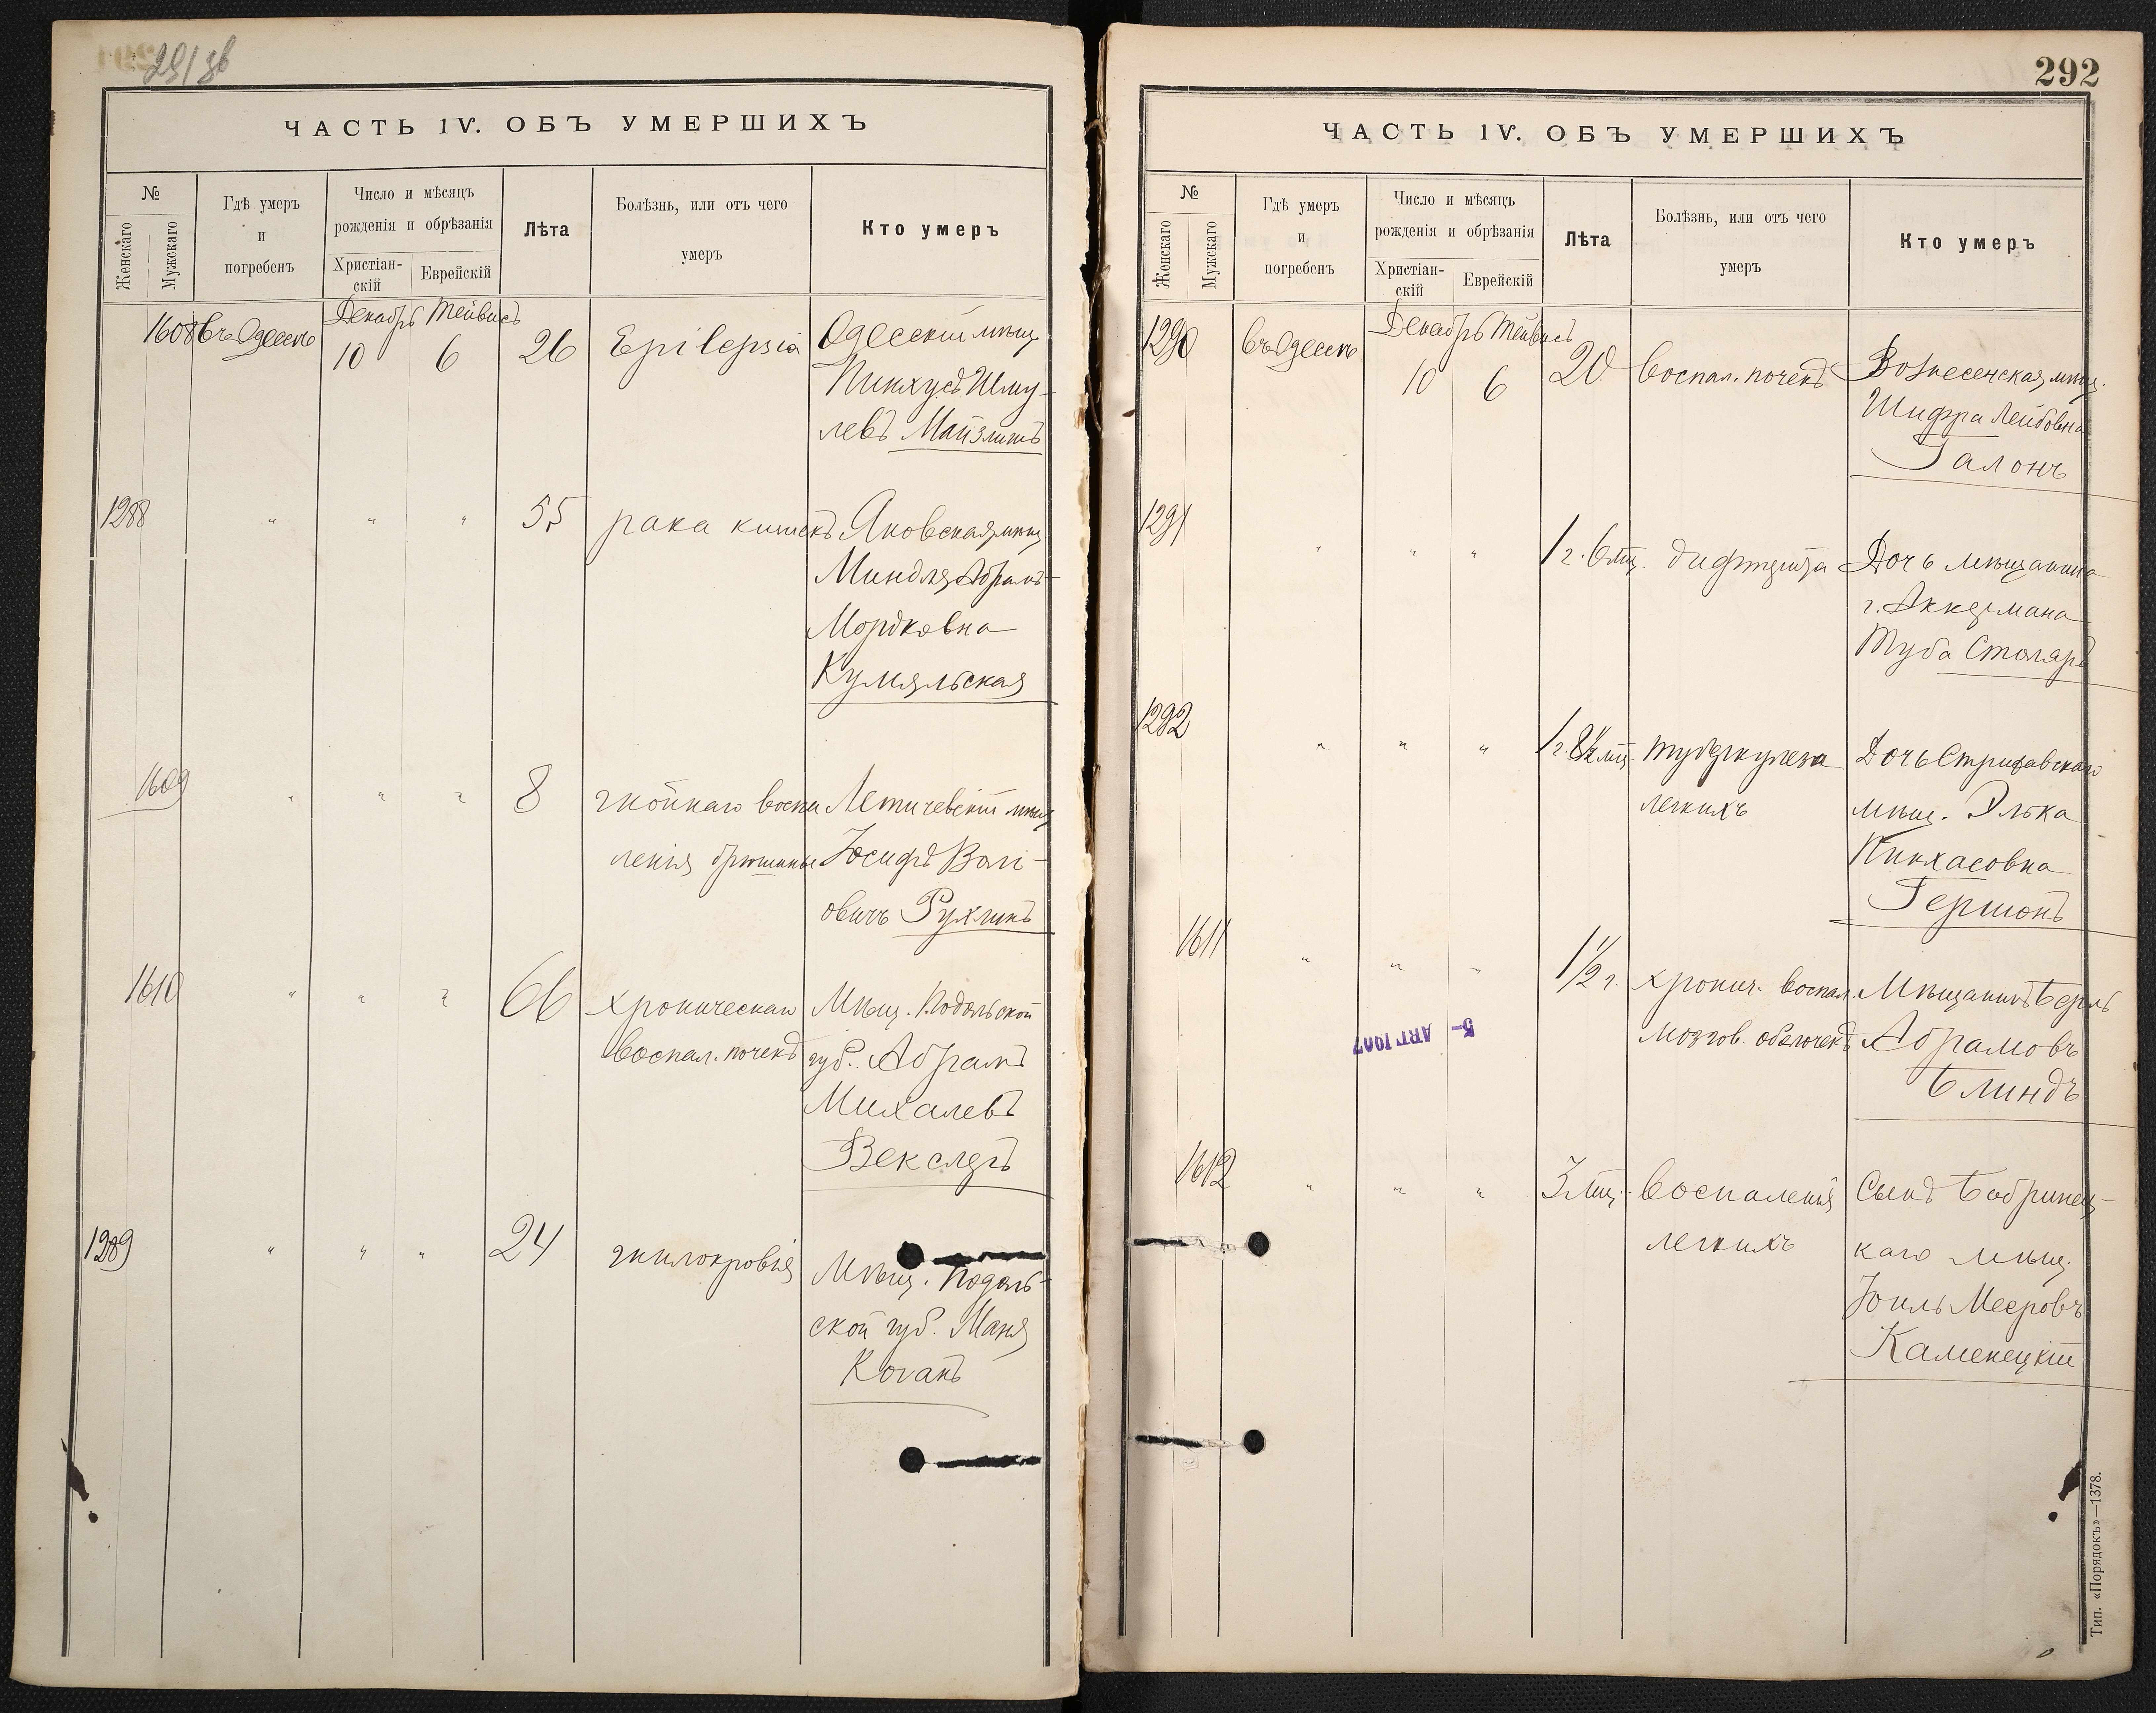 291 об
ЧАСТЬ IV. ОБЪ УМЕРШИХЪ
№
Женскаго
Мужскаго
Гдѣ умеръ
и
погребенъ
Число и мѣсяцъ
рожденія и обрѣзанія
Христіан-
скій
Еврейскій
Лѣта
Болѣзнь, или отъ чего
умеръ
Кто умеръ
Декабрь Тейвисъ
1608 въ Одессѣ 10 6 26 Epilepsia Одесскій мѣщ.
Пинхусъ Шму-
левъ Майзлишъ
1288 " " " 55 рака кишекъ Яновская мѣщ.
Миндля Абрамъ-
Мордковна
Кумяльская
1609 " " " 8 гнойнаго воспа Летичевскій мѣщ
ленія брюшины Іосифъ Вол-
овичъ Рухлинъ
1610 " " " 66 хроническаго Мѣщ. Подольской
воспал. почекъ губ. Абрамъ
Михалевъ
Векслеръ
1289 " " " 24 гнилокровія Мѣщ. Подоль-
ской губ. Маня
Коганъ
292
ЧАСТЬ IV. ОБЪ УМЕРШИХЪ
№
Женскаго
Мужскаго
Гдѣ умеръ
и
погребенъ
Число и мѣсяцъ
рожденія и обрѣзанія
Христіан-
скій
Еврейскій
Лѣта
Болѣзнь, или отъ чего
умеръ
Кто умеръ
Декабрь Тейвисъ
1290 въ Одессѣ 10 6 20 воспал. почекъ Вознесенская мѣщ.
Шифра Лейбовна
Галонъ
1291 " " " 1 г. 6 мц. дифтерита Дочь мѣщанина
г. Аккермана
Туба Столяръ
1292 " " " 1 г. 8½ мц. туберкулеза Дочь Стрижавскаго
легкихъ мѣщ. Элька
Пинхасовна
Гершонъ
1611 " " " 1½ г. хронич. воспал. Мѣщанинъ Берль
мозгов. оболочекъ Абрамовъ
Блиндъ
5- АВГ 1907
1612 " " " 3 мц. воспаленія Сынъ Бобринец-
легкихъ каго мѣщ.
Іоиль Мееровъ
Каменецкій
Тип. «Порядокъ»—1378.